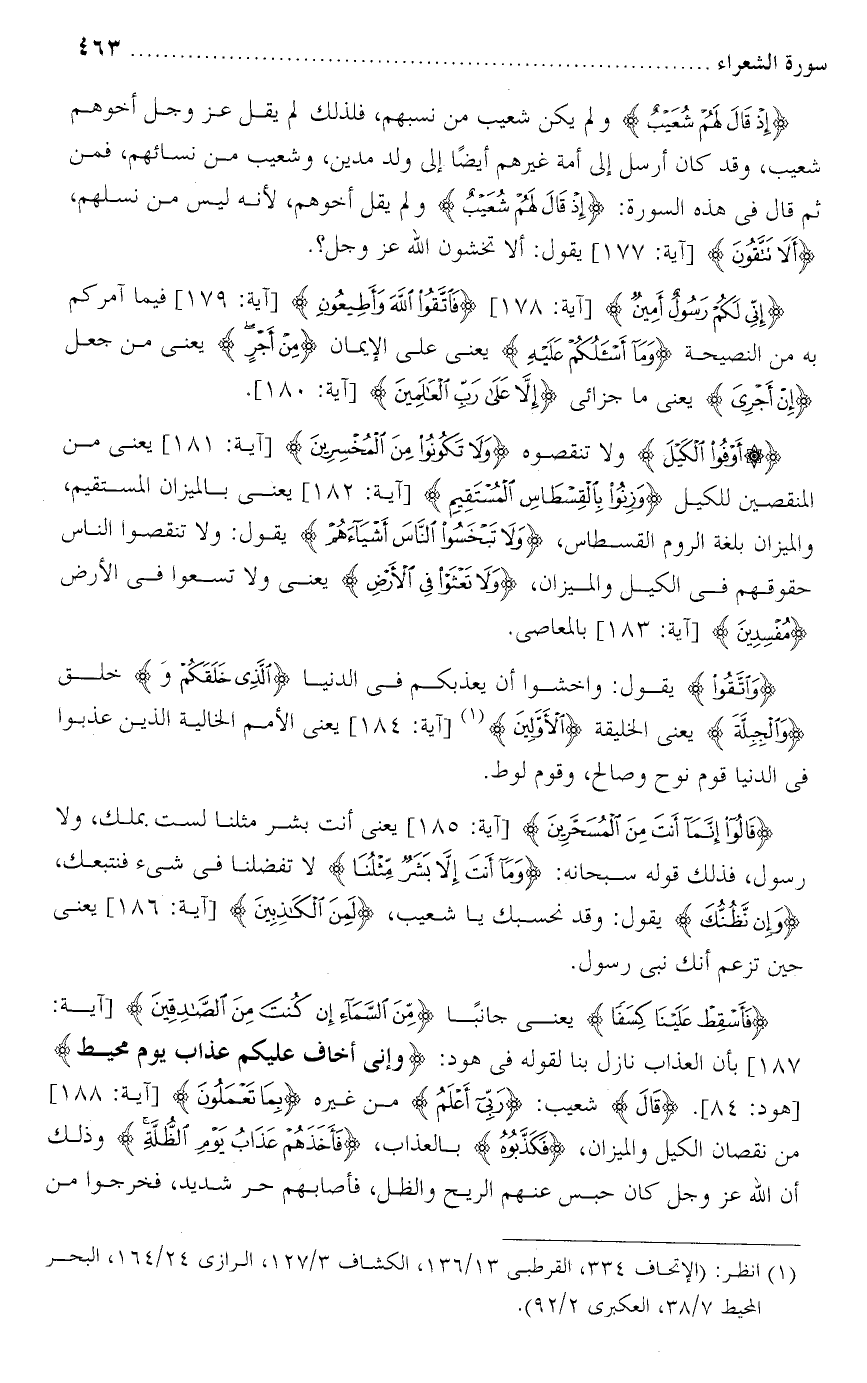 سورة الشعراء ........................................................................ ٤٦٣
﴿إِذْ قَالَ لَهُمْ شُعَيْبٌ﴾ ولم يكن شعيب من نسبهم، فلذلك لم يقل عز وجل أخوهم
شعيب، وقد كان أرسل إلى أمة غيرهم أيضًا إلى ولد مدين، وشعيب من نسائهم، فمن
ثم قال فى هذه السورة: ﴿إِذْ قَالَ لَهُمْ شُعَيْبٌ﴾ ولم يقل أخوهم، لأنه ليس من نسلهم،
﴿أَلَا تَتَّقُونَ﴾ [آية: ١٧٧] يقول: ألا تخشون الله عز وجل؟.
﴿إِنِّى لَكُمْ رَسُولٌ أَمِينٌ﴾ [آية: ١٧٨] ﴿فَٱتَّقُوا۟ ٱللَّهَ وَأَطِيعُونِ﴾ [آية: ١٧٩] فيما آمركم
به من النصيحة ﴿وَمَآ أَسْـَٔلُكُمْ عَلَيْهِ﴾ يعنى على الإيمان ﴿مِنْ أَجْرٍ﴾ يعنى من جعل
﴿إِنْ أَجْرِىَ﴾ يعنى ما جزائى ﴿إِلَّا عَلَىٰ رَبِّ ٱلْعَـٰلَمِينَ﴾ [آية: ١٨٠].
﴿۞ أَوْفُوا۟ ٱلْكَيْلَ﴾ ولا تنقصوه ﴿وَلَا تَكُونُوا۟ مِنَ ٱلْمُخْسِرِينَ﴾ [آية: ١٨١] يعنى من
المنقصين للكيل ﴿وَزِنُوا۟ بِٱلْقِسْطَاسِ ٱلْمُسْتَقِيمِ﴾ [آية: ١٨٢] يعنى بالميزان المستقيم،
والميزان بلغة الروم القسطاس، ﴿وَلَا تَبْخَسُوا۟ ٱلنَّاسَ أَشْيَآءَهُمْ﴾ يقول: ولا تنقصوا الناس
حقوقهم فى الكيل والميزان، ﴿وَلَا تَعْثَوْا۟ فِى ٱلْأَرْضِ﴾ يعنى ولا تسعوا فى الأرض
﴿مُفْسِدِينَ﴾ [آية: ١٨٣] بالمعاصى.
﴿وَٱتَّقُوا۟﴾ يقول: واخشوا أن يعذبكم فى الدنيا ﴿ٱلَّذِى خَلَقَكُمْ وَ﴾ خلق
﴿وَٱلْجِبِلَّةَ﴾ يعنى الخليقة ﴿ٱلْأَوَّلِينَ﴾(١) [آية: ١٨٤] يعنى الأمم الخالية الذين عذبوا
فى الدنيا قوم نوح وصالح، وقوم لوط.
﴿قَالُوٓا۟ إِنَّمَآ أَنتَ مِنَ ٱلْمُسَحَّرِينَ﴾ [آية: ١٨٥] يعنى أنت بشر مثلنا لست بملك، ولا
رسول، فذلك قوله سبحانه: ﴿وَمَآ أَنتَ إِلَّا بَشَرٌ مِّثْلُنَا﴾ لا تفضلنا فى شىء فنتبعك،
﴿وَإِن نَّظُنُّكَ﴾ يقول: وقد نحسبك يا شعيب، ﴿لَمِنَ ٱلْكَـٰذِبِينَ﴾ [آية: ١٨٦] يعنى
حين تزعم أنك نبى رسول.
﴿فَأَسْقِطْ عَلَيْنَا كِسَفًا﴾ يعنى جانبًا ﴿مِّنَ ٱلسَّمَآءِ إِن كُنتَ مِنَ ٱلصَّـٰدِقِينَ﴾ [آية:
١٨٧] بأن العذاب نازل بنا لقوله فى هود: ﴿وإنى أخاف عليكم عذاب يوم محيط﴾
[هود: ٨٤]. ﴿قَالَ﴾ شعيب: ﴿رَبِّىٓ أَعْلَمُ﴾ من غيره ﴿بِمَا تَعْمَلُونَ﴾ [آية: ١٨٨]
من نقصان الكيل والميزان، ﴿فَكَذَّبُوهُ﴾ بالعذاب، ﴿فَأَخَذَهُمْ عَذَابُ يَوْمِ ٱلظُّلَّةِ﴾ وذلك
أن الله عز وجل كان حبس عنهم الريح والظل، فأصابهم حر شديد، فخرجوا من
(١) انظر: (الإتحاف ٣٣٤، القرطبى ١٣٦/١٣، الكشاف ١٢٧/٣، الرازى ١٦٤/٢٤، البحر
المحيط ٣٨/٧، العكبرى ٩٢/٢).